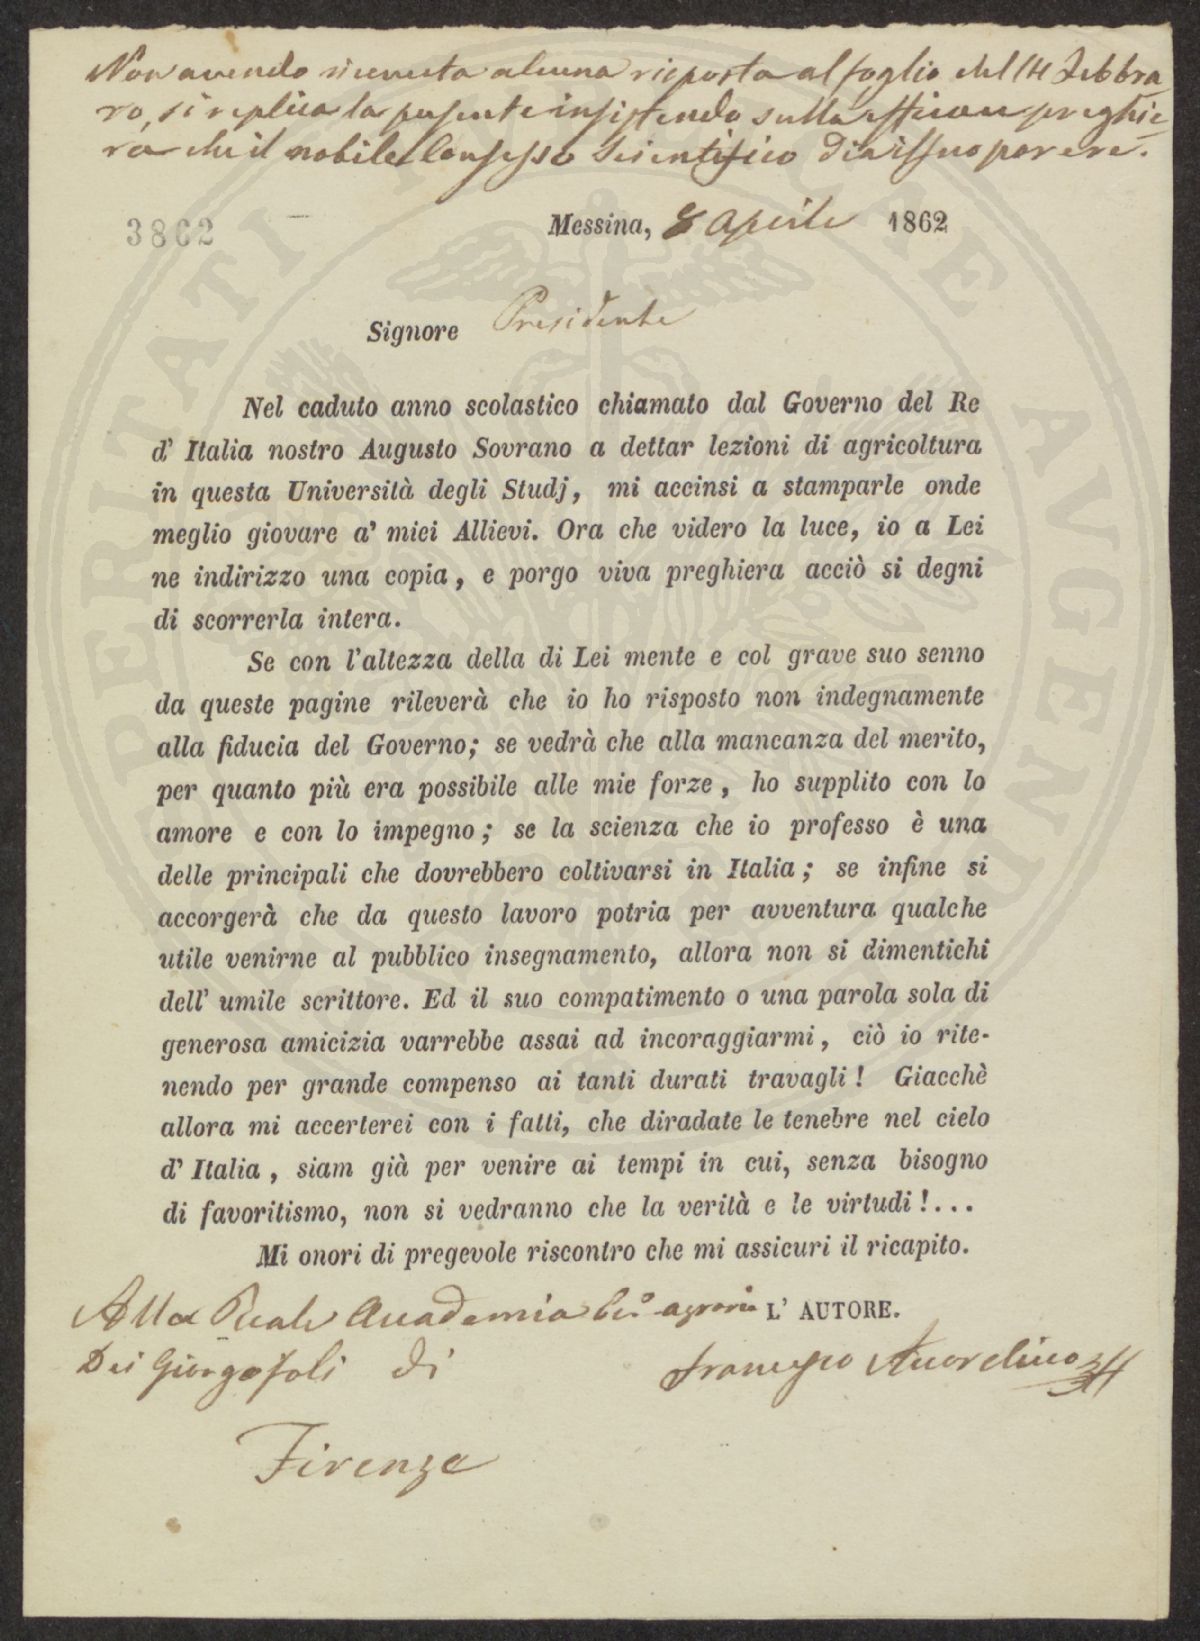 Non avendo ricevuta alcuna risposta al foglio del 14 Febbra
ro, si replica la presente insistendo sulla efficace preghie
ra che il nobile Consesso Scientifico dia il suo parere.
3862
Messina, 8 Aprile 1862
Signore Presidente
Nel caduto anno scolastico chiamato dal Governo del Re
d' Italia nostro Augusto Sovrano a dettar lezioni di agricoltura
in questa Università degli Studj, mi accinsi a stamparle onde
meglio giovare a' miei Allievi. Ora che videro la luce, io a Lei
ne indirizzo una copia, e porgo viva preghiera acciò si degni
di scorrerla intera.
Se con l'altezza della di Lei mente e col grave suo senno
da queste pagine rileverà che io ho risposto non indegnamente
alla fiducia del Governo; se vedrà che alla mancanza del merito,
per quanto più era possibile alle mie forze, ho supplito con lo
amore e con lo impegno; se la scienza che io professo è una
delle principali che dovrebbero coltivarsi in Italia; se infine si
accorgerà che da questo lavoro potria per avventura qualche
utile venirne al pubblico insegnamento, allora non si dimentichi
dell' umile scrittore. Ed il suo compatimento o una parola sola di
generosa amicizia varrebbe assai ad incoraggiarmi, ciò io rite-
nendo per grande compenso ai tanti durati travagli! Giacchè
allora mi accerterei con i fatti, che diradate le tenebre nel cielo
d' Italia, siam già per venire ai tempi in cui, senza bisogno
di favoritismo, non si vedranno che la verità e le virtudi!...
Mi onori di pregevole riscontro che mi assicuri il ricapito.
Alla Reale Accademia agraria L' AUTORE.
Dei Giorgofoli di Francesco
Firenze
PROSPERITATI PUBLICAE AUGENDAE